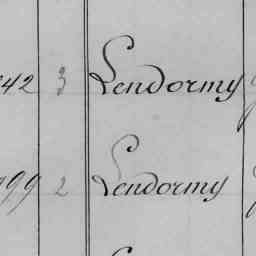 42 3 Lendormy
99 2 Lendormy